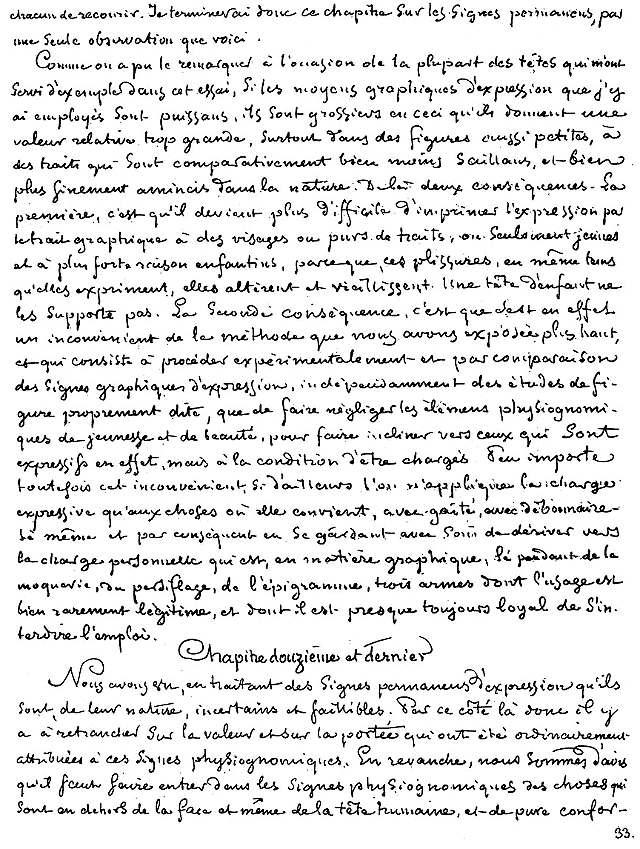 chacun de recourir. Je terminerai donc ce chapitre sur les signes permanens, par
une seule observation que voici.
Comme on a pu le remarquer à l'occasion de la plupart des têtes qui m'ont
servi d'exemple dans cet essai, si les moyens graphiques d'expression que j'y
ai employés sont puissans, ils sont grossiers en ceci qu'ils donnent une
valeur relative trop grande, surtout dans des figures aussi petites, à
des traits qui sont comparativement bien moins saillans, et bien
plus finement amincis dans la nature. De là deux conséquences. La
première, c'est qu'il devient plus difficile d'imprimer l'expression par
le trait graphique à des visages ou purs de traits, ou seulement jeunes
et à plus forte raison enfantins, parce que ces plissures, en même tems
qu'elles expriment, elles altèrent et vieillissent. Une tête d'enfant ne
les supporte pas. La seconde conséquence, c'est que c'est en effet
un inconvenient de la méthode que nous avons exposée plus haut,
et qui consiste à procéder expérimentalement et par comparaison
des signes graphiques d'expression, indépendamment des études de fi-
gure proprement dite, que de faire négliger les élémens physiognomi-
ques de jeunesse et de beauté, pour faire incliner vers ceux qui sont
expressifs en effet, mais à la condition d'être chargés. Peu importe
toutefois cet inconvénient, si d'ailleurs l'on n'applique la charge
expressive qu'aux choses où elle convient, avec gaîté, avec débonnaire-
té même et par conséquent en se gardant avec soin de dériver vers
la charge personnelle qui est, en matière graphique, le pendant de la
moquerie, du persiflage, de l'épigramme, trois armes dont l'usage est
bien rarement légitime, et dont il est presque toujours loyal de s'in-
terdire l'emploi.
Chapitre douzième et dernier
Nous avons vu, en traitant des signes permanens d'expression qu'ils
sont, de leur nature, incertains et faillibles. Par ce côté là donc il y
a à retrancher sur la valeur et sur la portée qui ont été ordinairement
attribuées à ces signes physiognomiques. En revanche, nous sommes d'avis
qu'il faut faire entrer dans les signes physiognomiques des choses qui
sont en dehors de la face et même de la tête humaine, et de pure confor-
33.